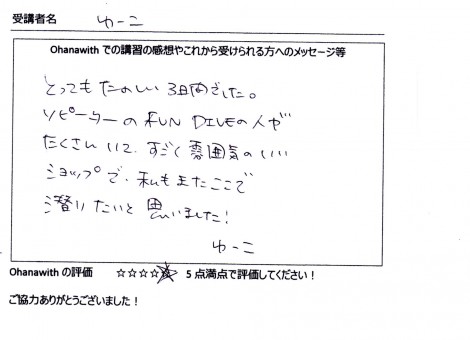 受講者名 ゆーこ
Ohanawith での講習の感想やこれから受けられる方へのメッセージ等
とってもたのしい3日間でした。
リピーターの FUN DIVEの人が
たくさんいて、すごく雰囲気のいい
ショップで、私もまたここで
潜りたいと思いました!
ゆーこ
Ohanawith の評価 ☆☆☆☆☆ 5 点満点で評価してください!
ご協力ありがとうございました!